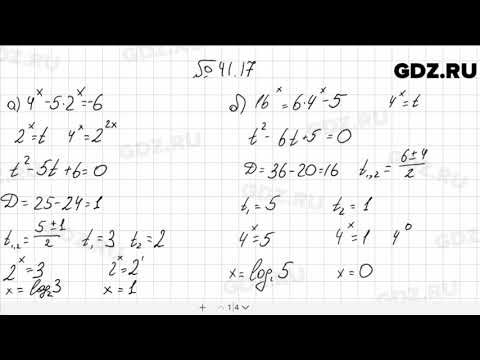 № 41.17
GDZ.RU
а) 4^x - 5·2^x = -6
2^x = t  4^x = 2^{2x}
t² - 5t + 6 = 0
D = 25 - 24 = 1
t₁,₂ = (5 ± 1)/2  t₁ = 3  t₂ = 2
2^x = 3  2^x = 2^1
x = log₂3  x = 1
б) 16^x = 6·4^x - 5  4^x = t
t² - 6t + 5 = 0
D = 36 - 20 = 16  t₁,₂ = (6 ± 4)/2
t₁ = 5  t₂ = 1
4^x = 5  4^x = 1  4^0
x = log₄5  x = 0
1/4